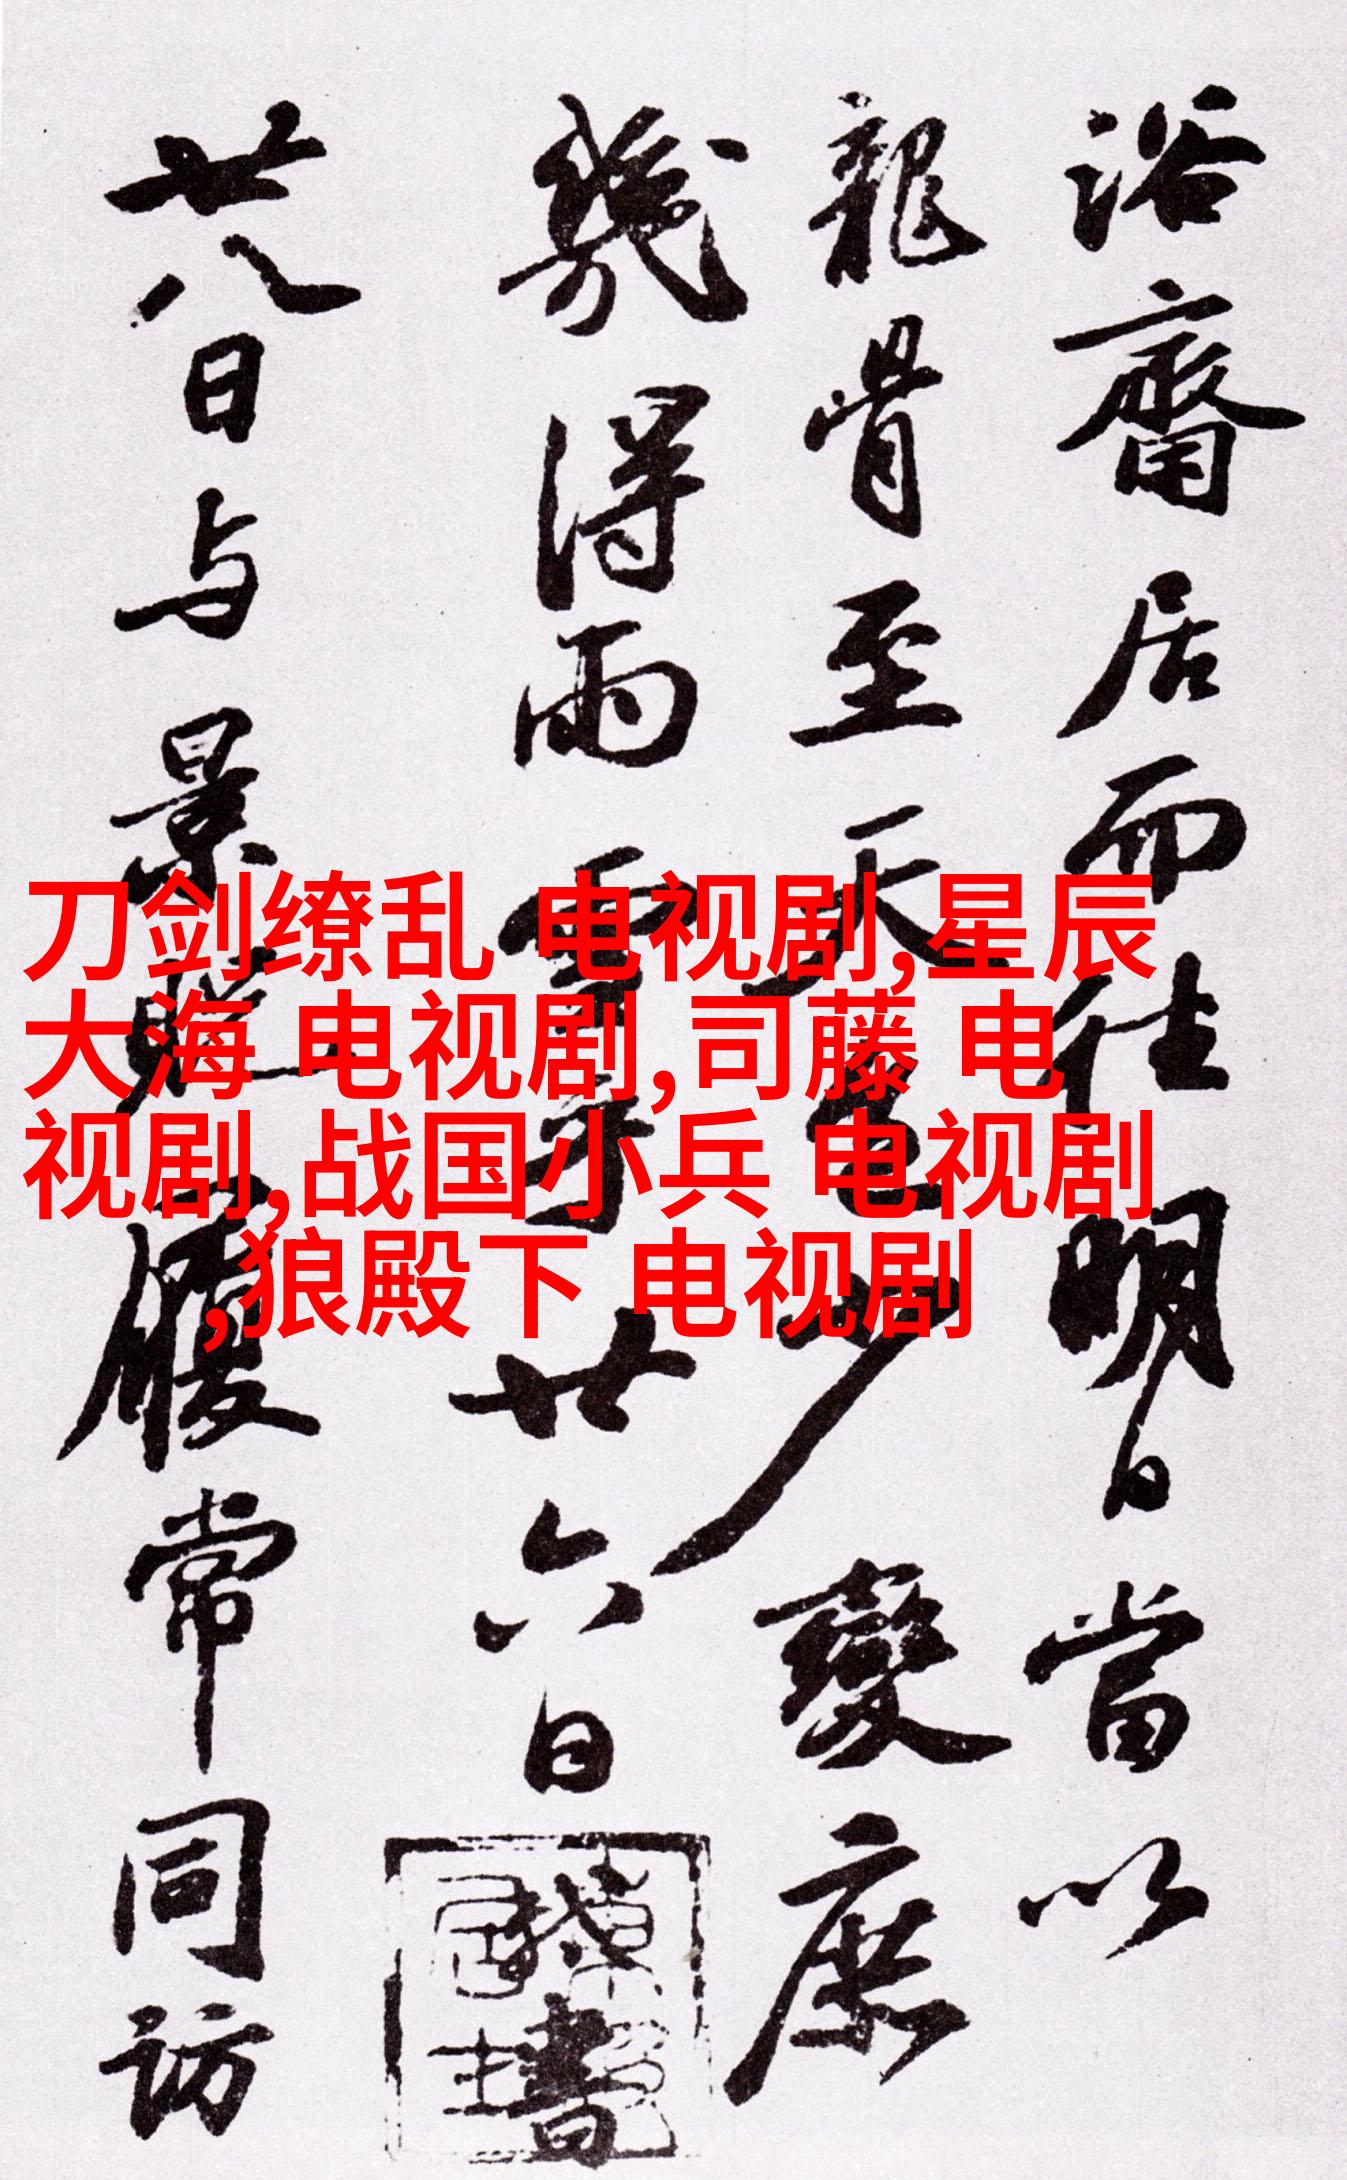 浴斋居而往明日當以
龍骨至天色少變庶
幾得雨雪家廿六日
書
廿八日与景履常同訪
刀剑缭乱 电视剧,星辰
大海 电视剧,司藤 电
视剧,战国小兵 电视剧
,狼殿下 电视剧